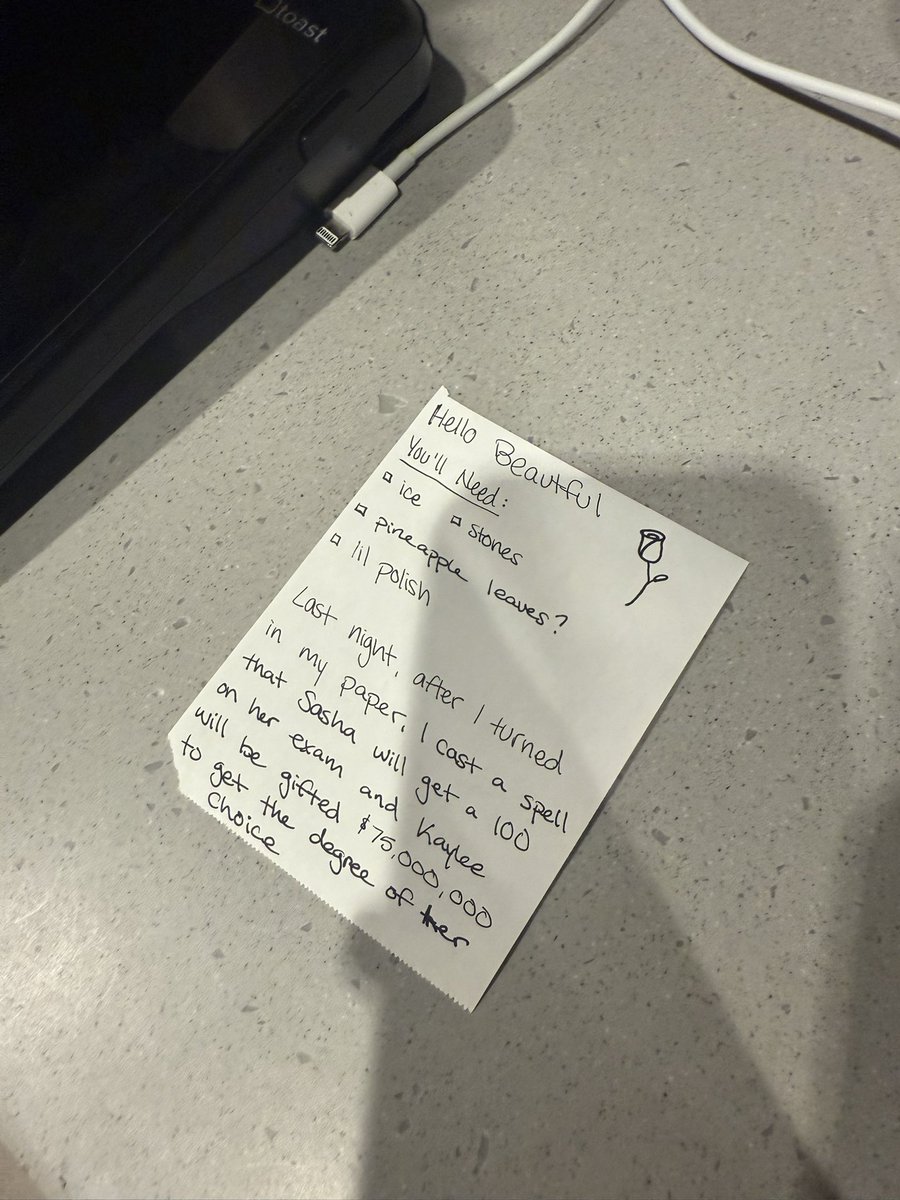 toast
Hello Beautiful
You'll Need:
ice stones
pineapple leaves?
lil polish
Last night, after I turned
in my paper, I cast a spell
that Sasha will get a 100
on her exam and Kaylee
will be gifted $75,000,000
to get the degree of her
choice